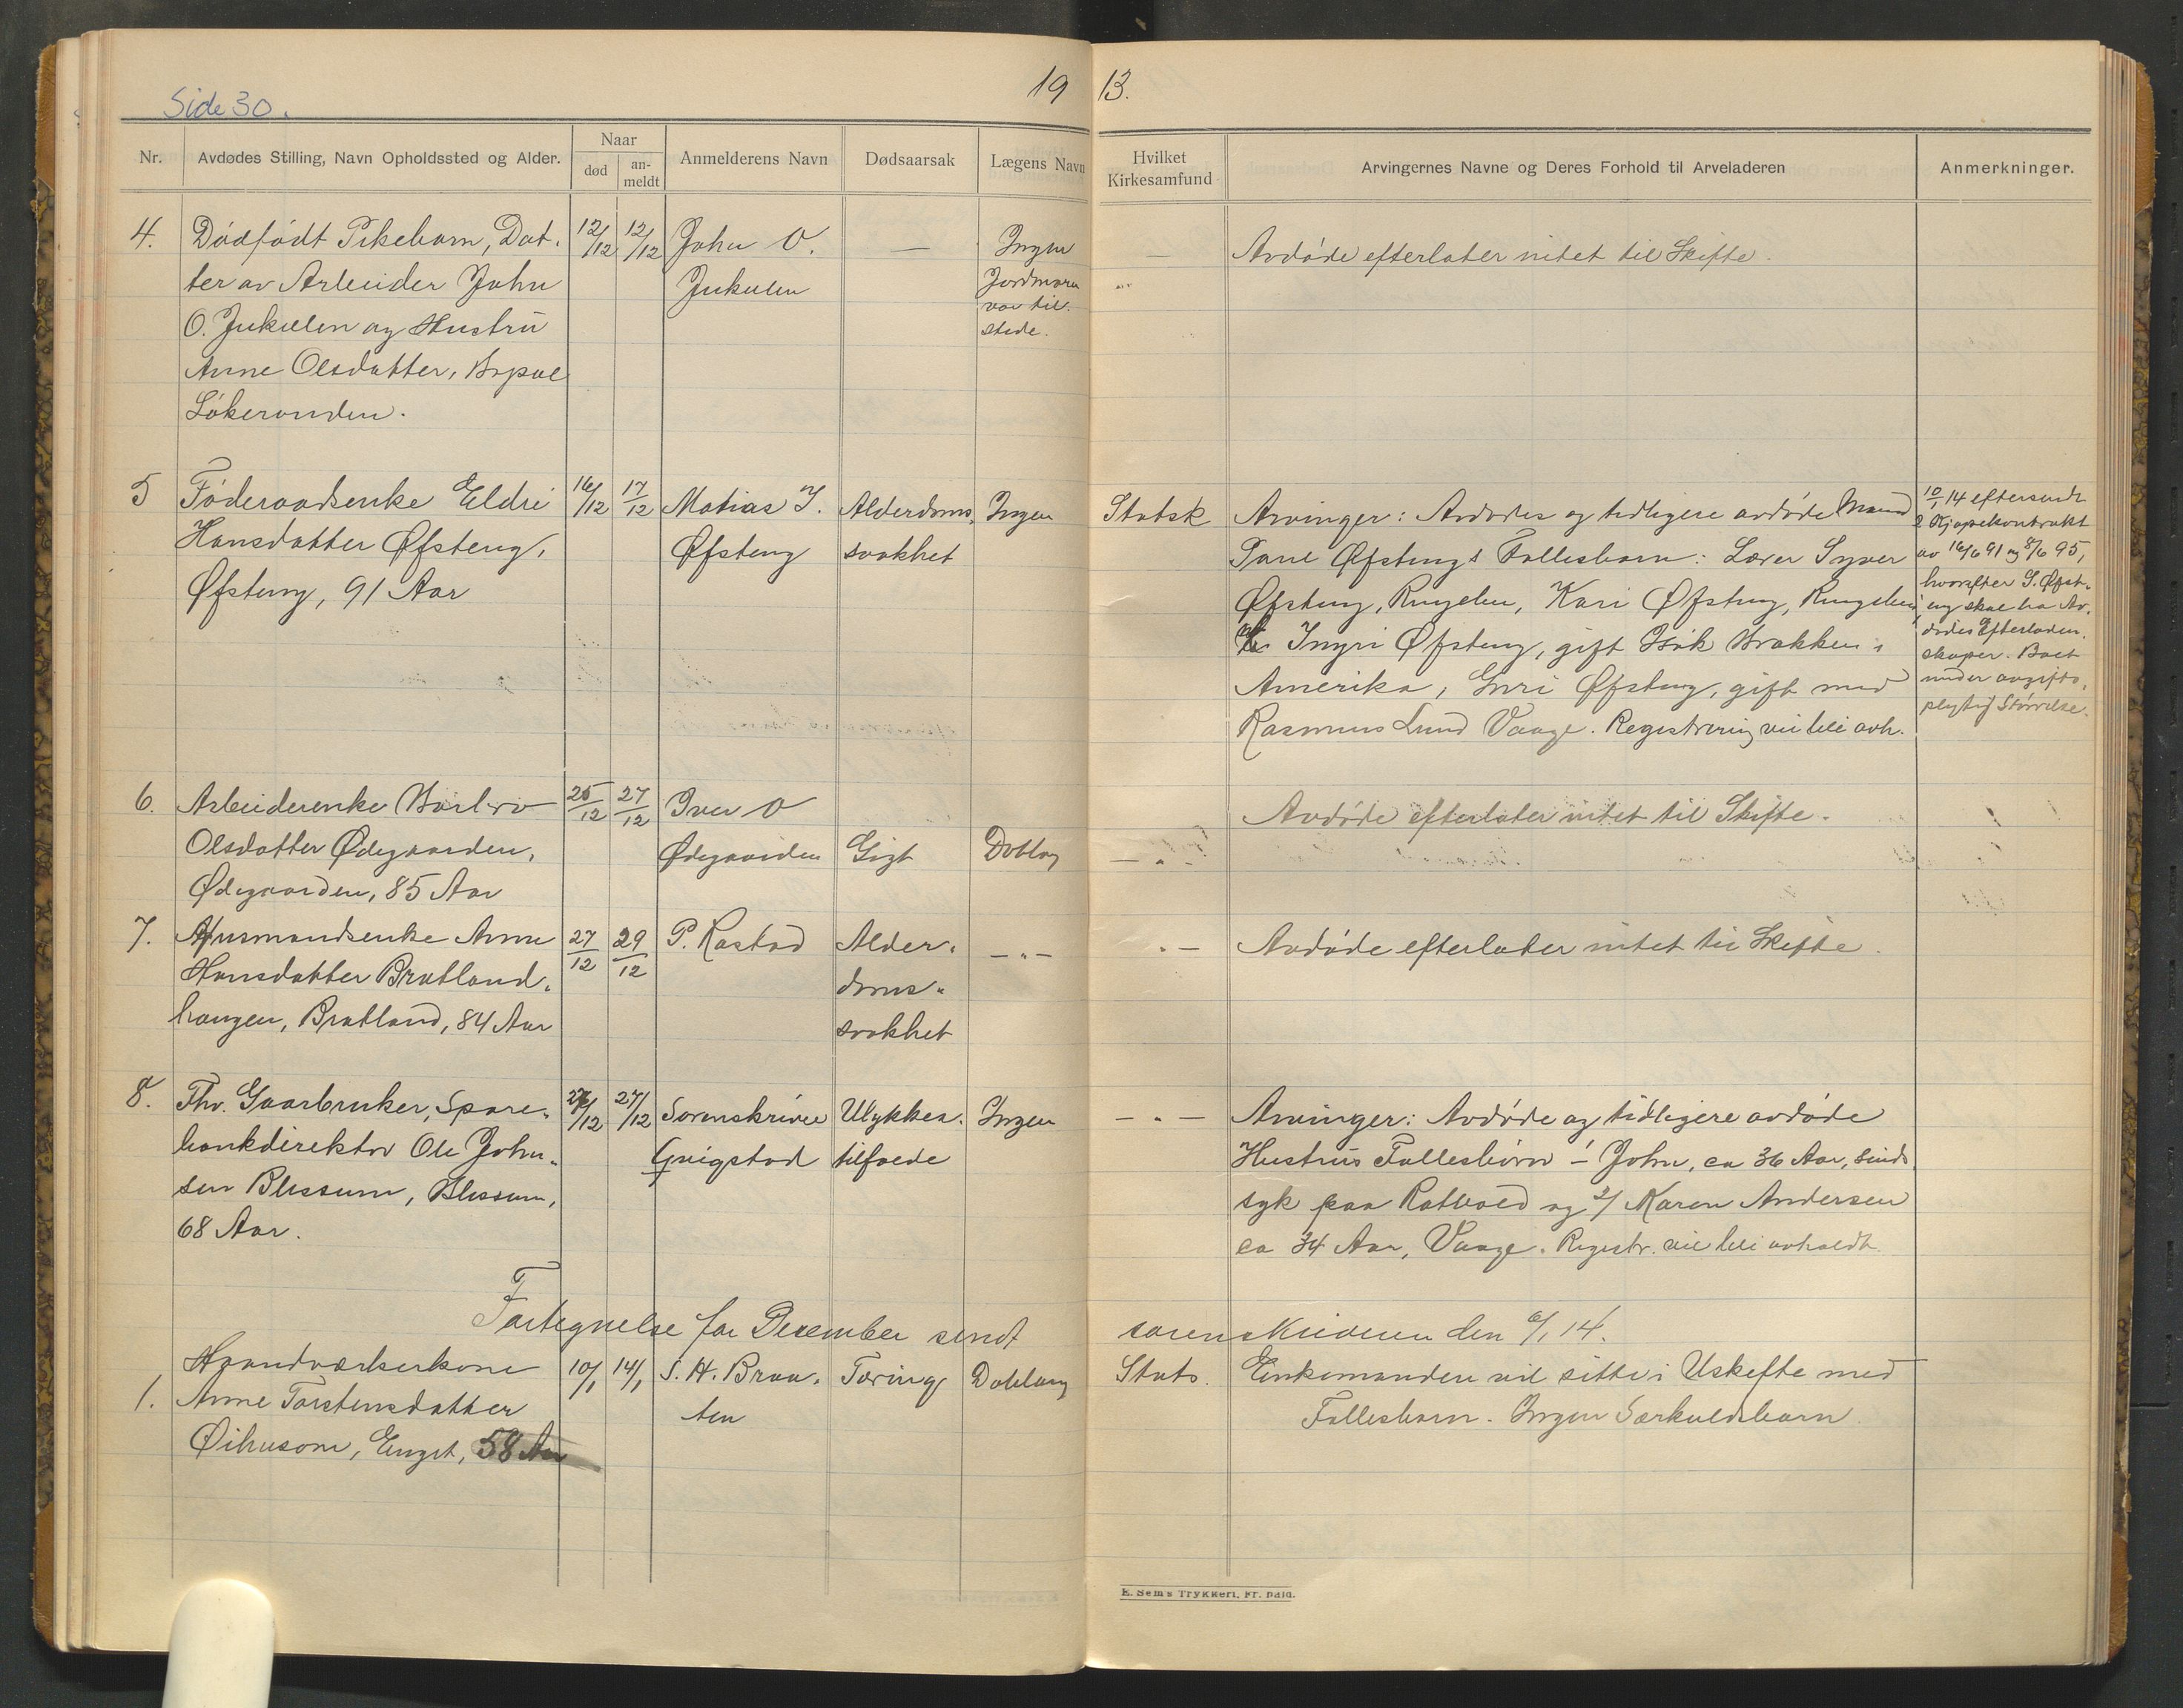 Side 30.
1913.
Nr. Avdødes Stilling, Navn Opholdssted og Alder. Naar død an-meldt Anmelderens Navn Dødsaarsak Lægens Navn Hvilket Kirkesamfund Arvingernes Navne og Deres Forhold til Arveladeren Anmerkninger.
4. Dødfødt Pikebarn, Dat- 12/12 12/12 John O. — Ingen — Avdøde efterlater intet til Skifte.
ter av Arbeider John Jukulen Jordmoren
O. Jukulen og Hustru var til-
Anne Olsdatter, stede.
Løkeranden.
5 Føderaadsenke Eldri 16/12 17/12 Matias I. Alderdoms- Ingen Statsk Arvinger: Avdødes og tidligere avdøde Mand
Hansdatter Øfsteng, Øfsteng svakhet Øfstengs Fællesbarn: Lærer Syver
Øfsteng, 91 Aar Øfsteng, Ringebu, Kari Øfsteng, Ringebu,
Ingri Øfsteng, gift Brækken i
Amerika, Guri Øfsteng, gift med
Rasmus Lund Vaage. Registrering vil bli avh.
10/1 14 eftersendt
2 Kjøpekontrakt
av 16/6 91 og 8/6 95,
hvorefter S. Øfst-
eng skal ha Av-
dødes Efterladen-
skaper. Boet
under avgifts-
plygtig Størrelse.
6. Arbeiderenke 25/12 27/12 Iver O Avdøde efterlater intet til Skifte.
Olsdatter Ødegaarden, Ødegaarden Gigt Doblaug — " —
Ødegaarden, 85 Aar
7. Husmandsenke Anne 27/12 29/12 P. Kastad Alder- — " — " — Avdøde efterlater intet til Skifte.
Hansdatter Bratland- doms-
haugen, Bratland, 84 Aar svakhet
8. Fhv. Gaarbruker, Spare- 27/12 27/12 Sorenskriver Ulykkes- Ingen — " — Arvinger: Avdøde og tidligere avdøde
bankdirektør Ole John- Grigstad tilfælde Hustrus Fællesbørn 1/ John, ca 36 Aar, sinds
sen Blessum, Blessum, syk paa Rotvold og 2/ Karen Andersen
68 Aar. ca 34 Aar, Vaage. Registr. vil bli avholdt.
Fortegnelse for December sendt sorenskriveren den 6/1 14.
Haandværkerkone 10/1 14/1 S. H. Braa- Tæring Doblaug Stats. Enkemanden vil sitte i Uskifte med
1. Anne Torstensdatter ten Fællesbarn. Ingen Særkuldsbarn.
Øihusom, Enget, 58 Aar
E. Sem's Trykkeri, Fr. hald.